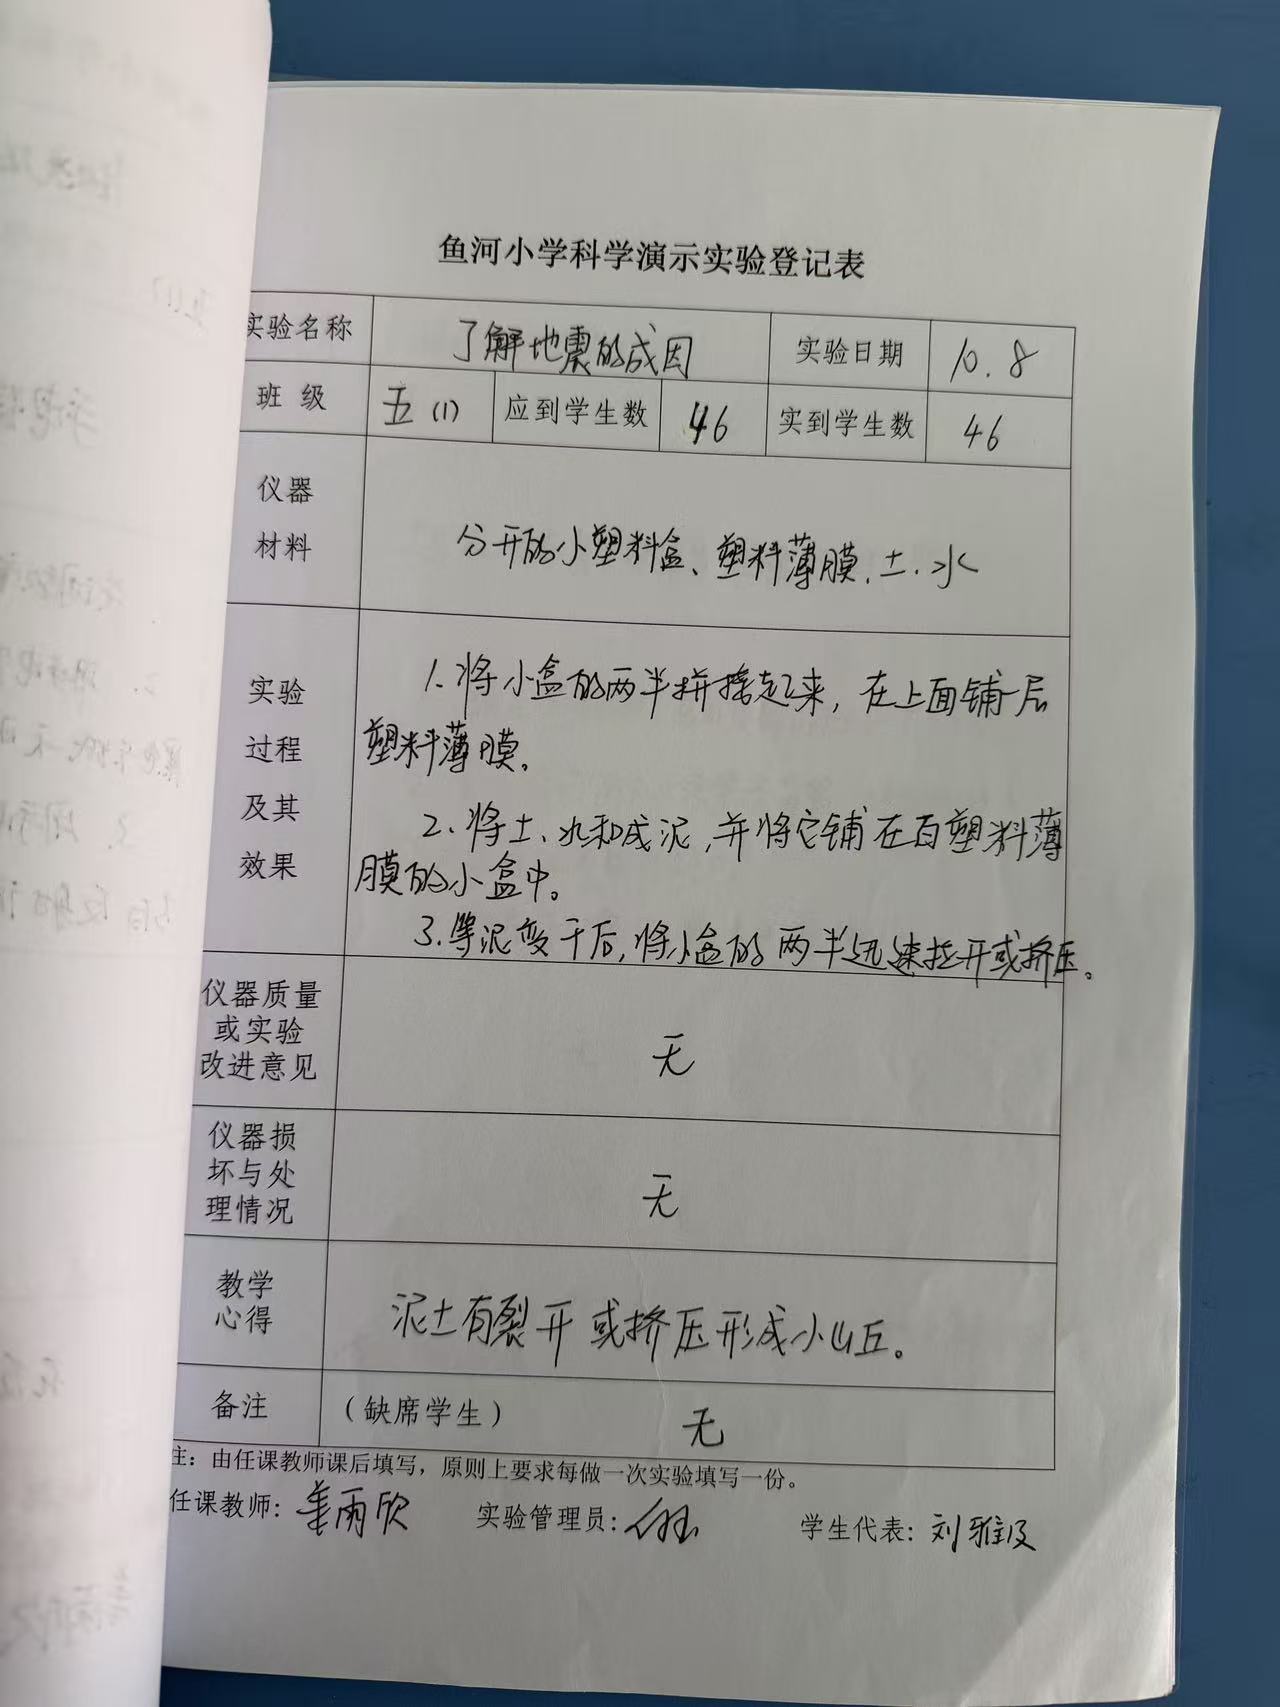 鱼河小学科学演示实验登记表
实验名称 了解地震的成因 实验日期 10.8
班 级 五(1) 应到学生数 46 实到学生数 46
仪器
材料
分开的小塑料盒、塑料薄膜、土、水
实验
过程
及其
效果
1.将小盒的两半拼接起来,在上面铺一层
塑料薄膜。
2.将土、水和成泥,并将它铺在有塑料薄
膜的小盒中。
3.等泥变干后,将小盒的两半迅速拉开或挤压。
仪器质量
或实验
改进意见
无
仪器损
坏与处
理情况
无
教学
心得
泥土有裂开或挤压形成小山丘。
备注 (缺席学生) 无
注:由任课教师课后填写,原则上要求每做一次实验填写一份。
任课教师:姜雨欣 实验管理员: 学生代表:刘雅